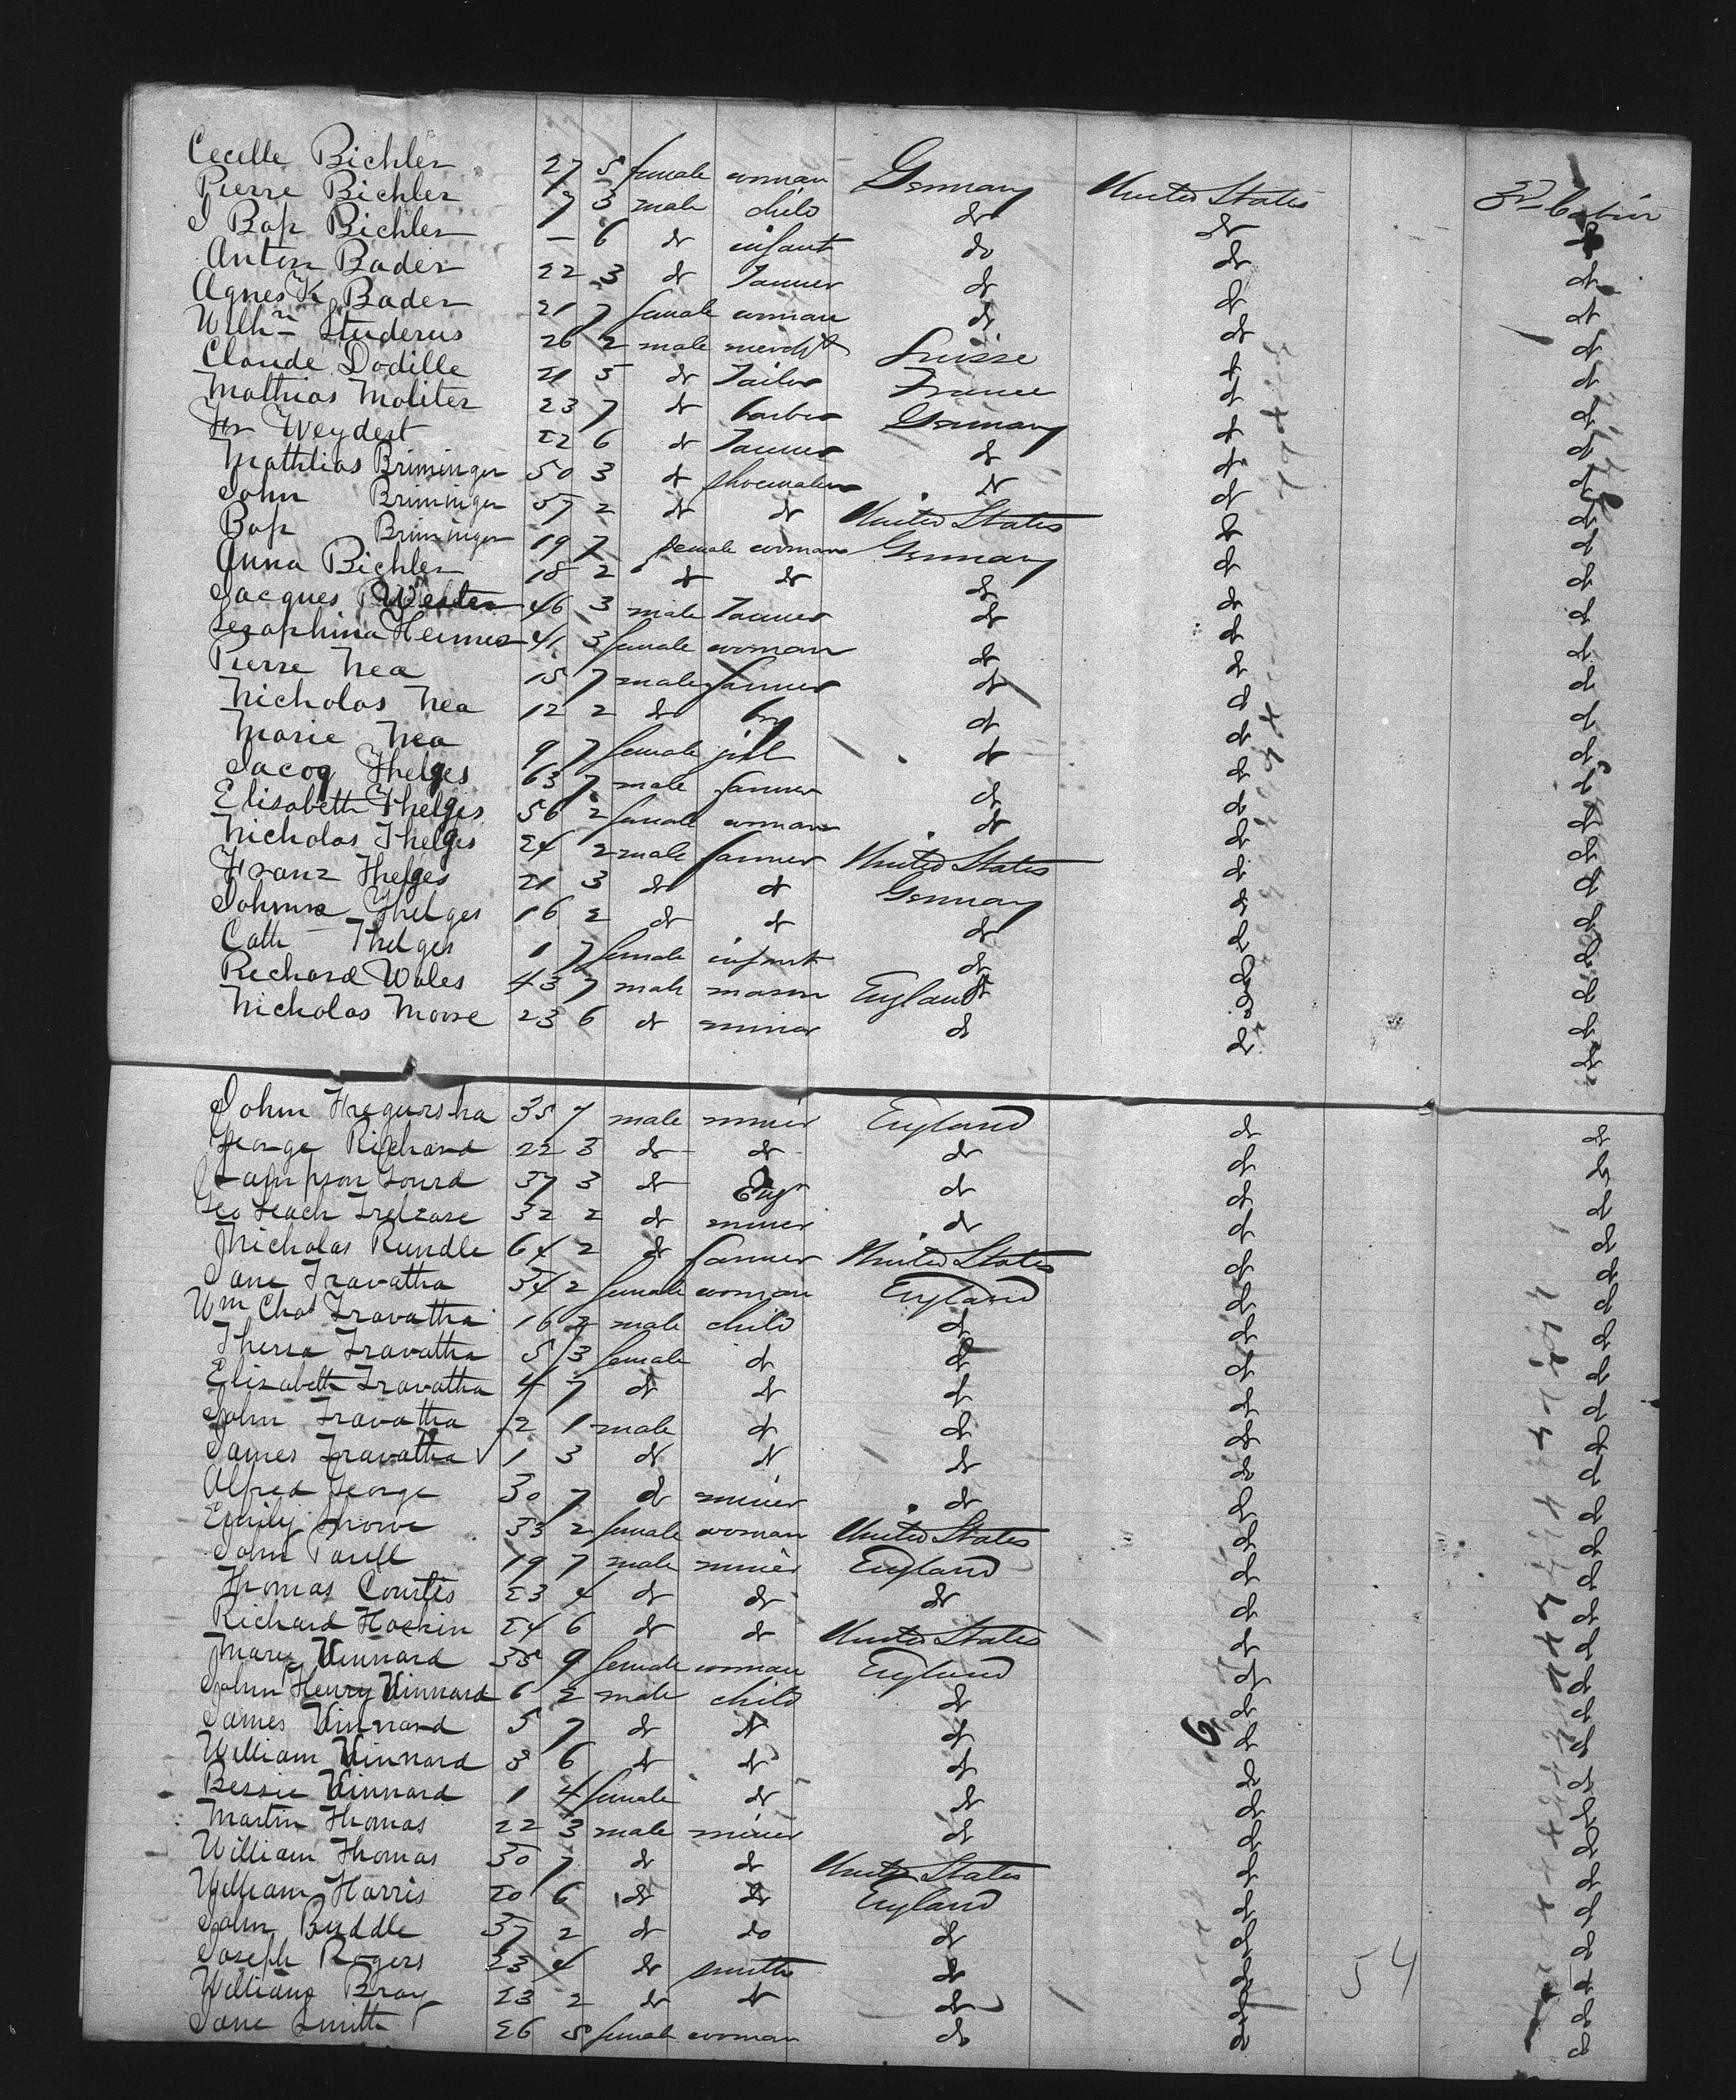 Cecelle Bichler 27 5 female woman Germany United States 3rd Cabin
Pierre Bichler 7 3 male child do do do
J Bap Bichler — 6 do infant do do do
Anton Bader 22 3 do Farmer do do do
Agnes K Bader 21 7 female woman do do do
Wilhm Studerus 26 2 male merch't Suisse do do
Claude Dodille 21 5 do Tailor France do do
Mathias Moliter 23 7 do barber Germany do do
Fr Weydert 22 6 do Farmer do do do
Mathias Brimingen 50 3 do shoemaker do do do
John Brimingen 57 2 do do United States do do
Bap Brimingen 19 7 female woman Germany do do
Anna Bichler 18 2 do do do do do
Jacques Wester 46 3 male Farmer do do do
Serophina Hermes 41 3 female woman do do do
Pierre Nea 15 7 male farmer do do do
Nicholas Nea 12 2 do boy do do do
Marie Nea 9 7 female girl do do do
Jacoq Thelges 63 7 male farmer do do do
Elisabeth Thelges 56 2 female woman do do do
Nicholas Thelges 24 2 male farmer United States do do
Franz Thelges 21 3 do do Germany do do
Johnna Thelges 16 2 do do do do do
Cath Thelges 1 7 female infant do do do
Richard Wales 43 7 male mason England do do
Nicholas Moore 23 6 do miner do do do
John Tregursha 35 7 male miner England do do
George Richard 22 3 do do do do do
Sampson Lourd 37 3 do Eng'r do do do
Geo Leach Trelease 32 2 do miner do do do
Nicholas Rundle 64 2 do farmer United States do do
Jane Travatha 34 2 female woman England do do
Wm Chas Travatha 16 2 male child do do do
Thersa Travatha 5 3 female do do do do
Elizabeth Travatha 4 7 do do do do do
John Travatha 2 1 male do do do do
James Travatha 1 3 do do do do do
Alfred George 30 7 do miner do do do
Emily 33 2 female woman United States do do
John 19 7 male miner England do do
Thomas Courtis 23 4 do do do do do
Richard Hoskin 24 6 do do United States do do
Mary Vinnard 35 9 female woman England do do
John Henry Vinnard 6 2 male child do do do
James Vinnard 5 7 do do do do do
William Vinnard 3 6 do do do do do
Bessie Vinnard 1 4 female do do do do
Martin Thomas 22 3 male miner do do do
William Thomas 30 7 do do United States do do
William Harris 20 6 do do England do do
John Buddle 37 2 do do do do do
Joseph Rogers 23 4 do smith do do do
William Bray 23 2 do do do do do
Jane Smith 26 5 female woman do do do
54